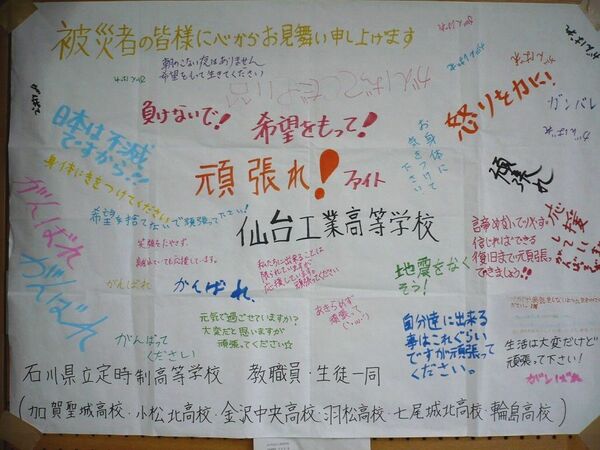 被災者の皆様に心からお見舞い申し上げます
朝のこない夜はありません
希望をもって生きてください
がんばれ
がんばれ
ガンバレ
負けないで!
希望をもって!
怒りを力に!
お身体に
気をつけて
下さい
日本は不滅
ですから!!
頑張れ!
ファイト
頑張れ
身体にきをつけてください
希望を捨てないで頑張ってください!
仙台工業高等学校
がんばれ
笑顔をたやさず
離れていても応援しています。
私たちに出来ることは
限られていますが
応援しています。
頑張ってください
地震をなく
そう!
諦めないで
信じればできる
復旧まで頑張っ
て
応援
して
がんばれ
がんばれ
がんばれ、
あきらめず
頑張って
がんばって
ください
元気で過ごせていますか?
大変だと思いますが
頑張ってください☆
自分達に出来る
事はこれぐらい
ですが頑張って
ください。
生活は大変だけど
頑張って下さい!
ガンばれ
石川県立定時制高等学校 教職員・生徒一同
(加賀聖城高校・小松北高校・金沢中央高校・羽松高校・七尾城北高校・輪島高校)